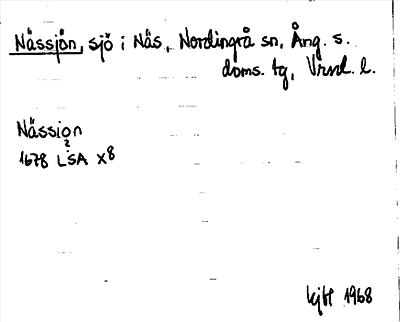 Nässjön, sjö i Näs, Nordingrå sn, Ång. s.
doms. tg, Vrnl. l.
Nässion
2
1678 LSA X8
kjbl 1968